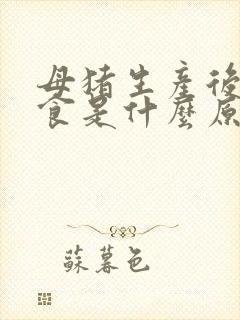 母猪生產後
食是什麼原
蘇暮色